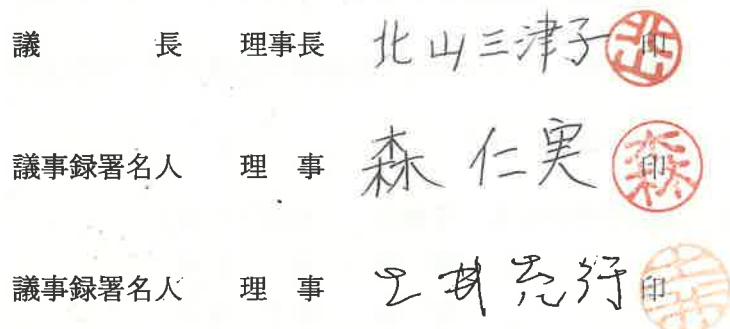 議長 理事長 北山三津子 印
議事録署名人 理事 森 仁実 印
議事録署名人 理事 印